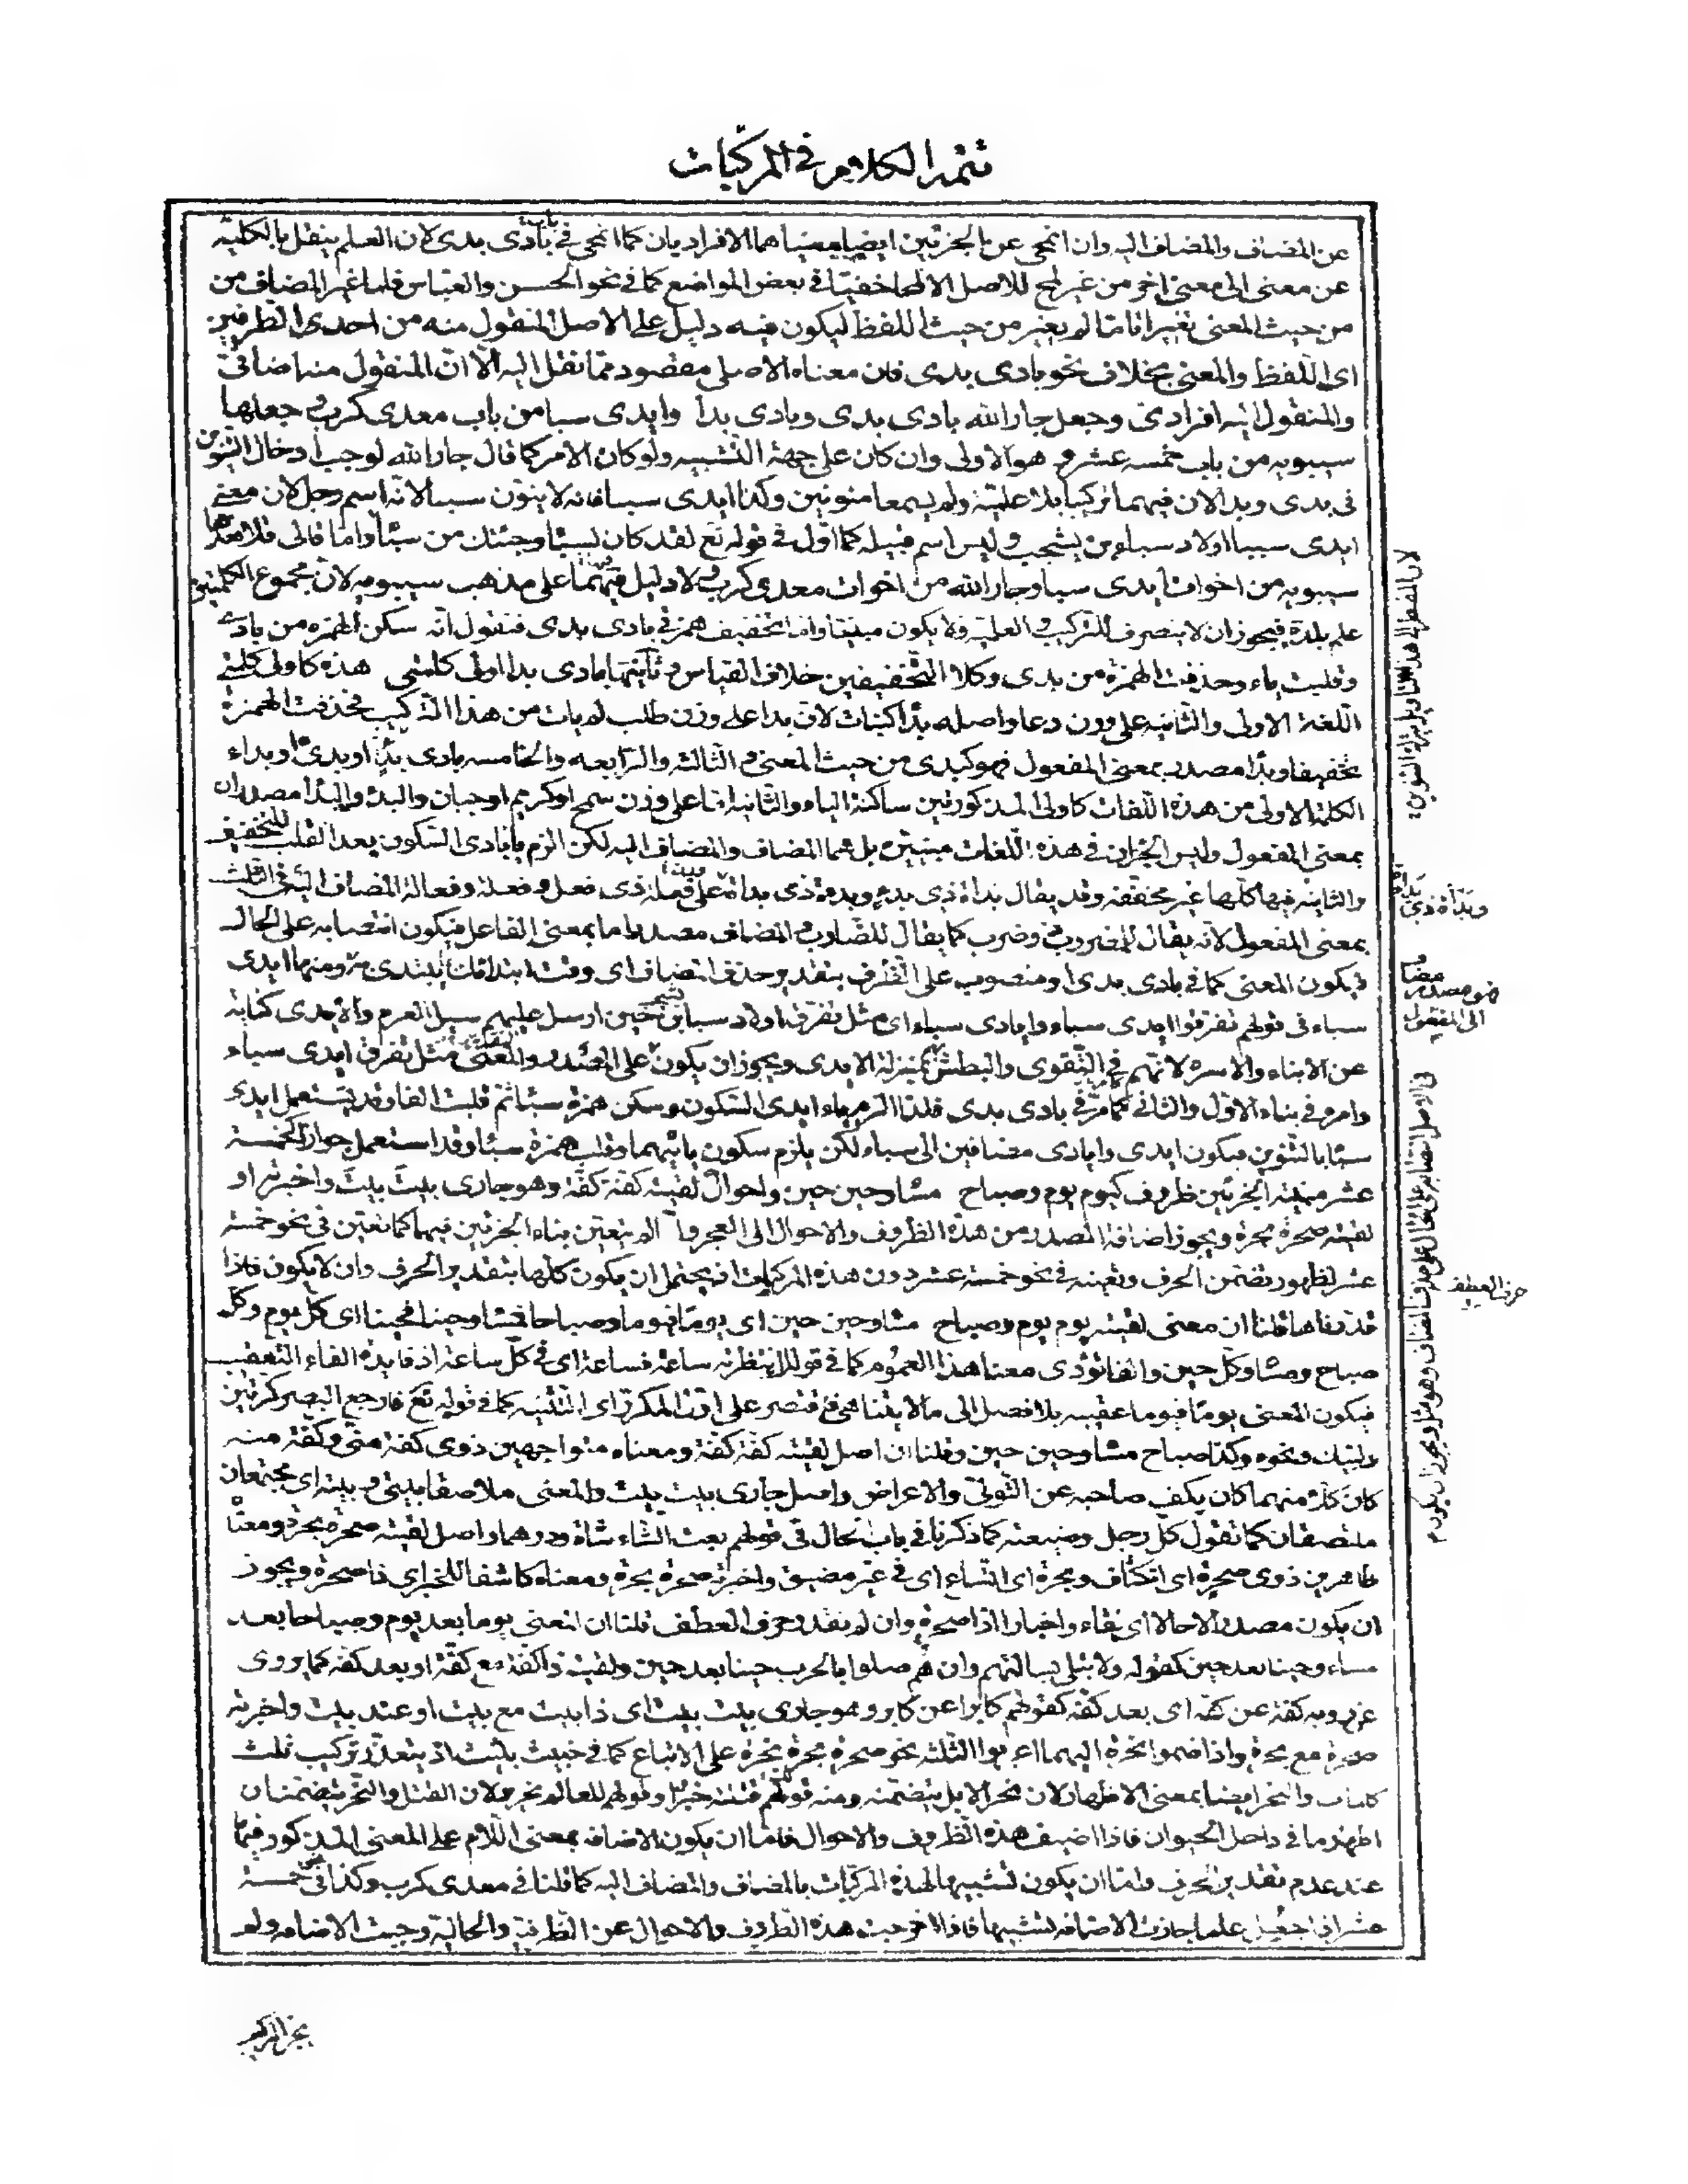 تتمة الكلام في المركبات
عن المضاف والمضاف اليه وان انمحى عن الجزئين ايضا معنياهما الافراديان كما انمحى في بادى بدى لان العلم ينقل بالكلية
عن معنى الى معنى اخر من غير لمح للاصل الا لمحا خفيا في بعض المواضع كما في نحو الحسن والعباس فلما غير المضاف من
من حيث المعنى تغييرا تاما لم يغير من حيث اللفظ ليكون فيه دليل على الاصل المنقول منه من احدى الطرفين
اى اللفظ والمعنى بخلاف نحو بادى بدى فان معناه الاصلى مقصود مما نقل اليه الا ان المنقول منه اضافى
والمنقول اليه افرادى وجعل جار الله بادى بدى وبادى بدا وايدى سبا من باب معدى كرب وجعلها
سيبويه من باب خمسة عشر وهو الاولى وان كان على جهة التشبيه ولو كان الامر كما قال جار الله لوجب ادخال التنوين
فى بدى وبدا لان فيهما تركيبا بلا علمية ولم يسمعا منونين وكذا ايدى سبا فانه لا ينون سبا لانه اسم رجل لان معنى
ايدى سبا اولاد سباء بن يشجب وليس اسم قبيلة كما اول في قوله تع لقد كان لسبأ وجئتك من سبأ واما قالى قلا فعدها
سيبويه من اخوات ايدى سبا وجار الله من اخوات معدى كرب ولا دليل فيهما على مذهب سيبويه لان مجموع الكلمتين
علم بلدة فيجوز ان لا ينصرف للتركيب والعلمية ولا يكون مبنيا واما تخفيف همز في بادى بدى فنقول انه سكن الهمزة من بادئ
وقلبت ياء وحذفت الهمزة من بدى وكلا التخفيفين خلاف القياس وثانيتهما بادى بدا اولى كلمتى هذه كاولى كلمتى
اللغة الاولى والثانية على وزن دعا واصله بدأ كنبات لان بدا على وزن طلب لم يات من هذا التركيب فحذفت الهمزة
تخفيفا وبدأ مصدر بمعنى المفعول فهو كبدى من حيث المعنى والثالثة والرابعة والخامسة بادى بدْءٍ او بدئ او بداء
الكلمة الاولى من هذه اللغات كاولى المذكورتين ساكنة الياء والثانية اما على وزن سمح او كريم او جبان والبدء والبداء مصدران
بمعنى المفعول وليس الجزان في هذه اللغات مبنيين بل هما المضاف والمضاف اليه لكن الزم ياء بادى السكون بعد القلب للتخفيف
والثانية فيها كلها غير مخففة وقد يقال بداة ذي بدء وبدءة ذى بداة على فعلة ذى فعل وفعلة وفعالة المضاف اليه في الثلث
بمعنى المفعول لانه يقال للمضروب ضرب كما يقال للضارب والمضاف مصدر اما بمعنى الفاعل فيكون انتصابه على الحال
فيكون المعنى كما في بادى بدى او منصوب على الظرف بتقدير حذف المضاف اى وقت ابتدائك بمبتدئ به ومنها ايدى
سباء فى قولهم تفرقوا ايدى سباء وايادى سباء اى مثل تفرق اولاد سبا بن يشجب حين ارسل عليهم سيل العرم والايدى كناية
عن الابناء والاسرة لانهم في التقوى والبطش بمنزلة الايدى ويجوز ان يكون على المصدر والمعنى مثل تفرق ايدى سباء
وامره في بناء الاول والثانى كما مر في بادى بدى فلذا الزم ياء ايدى السكون وسكن همزة سبأ ثم قلبت الفا وقد يستعمل ايدى
سبئا بالتنوين فيكون ايدى وايادى مضافين الى سباء لكن يلزم سكون يائيهما وقلب همزة سبأ وقد استعمل جوازا كخمسة
عشر مبنية الجزئين ظروف كيوم يوم وصباح مساء وحين حين واحوال نحو لقيته كفة كفة وهو جارى بيت بيت واخبرته او
لقيته صحرة بحرة ويجوز اضافة الصدر من هذه الظروف والاحوال الى العجز وانما لم يتعين بناء الجزئين فيها كما تعين في نحو خمسة
عشر لظهور تضمن الحرف وتعينه في نحو خمسة عشر دون هذه المركبات اذ يحتمل ان يكون كلها بتقدير الحرف وان لا يكون فاذا
قدرناها قلنا ان معنى لقيته يوم يوم وصباح مساء وحين حين اى يوما فيوما وصباحا فمساء وحينا فحينا اى كل يوم وكل
صباح ومساء وكل حين والفاء تؤدى معنى هذا العموم كما في قولك انتظرته ساعة فساعة اى في كل ساعة اذ فايدة الفاء التعقيب
فيكون المعنى يوما فيوما عقيبه بلا فصل الى ما لا يتناهى فاقتصر على اول المكرر اى التثنية كما في قوله تع فارجع البصر كرتين
ولبيك ونحوه وكذا صباح مساء وحين حين وقلنا ان اصل لقيته كفة كفة ومعناه متواجهين ذوى كفة منى وكفة منه
كان كلا منهما كان يكف صاحبه عن التولى والاعراض واصل جارى بيت بيت والمعنى ملاصقا بيتى وبيته اى مجتمعان
ملتصقان كما تقول كل رجل وضيعته كما ذكرنا في باب الحال في قولهم بعت الشاء شاة ودرهما واصل لقيته صحرة بحرة ومعناه
ظاهرين ذوى صحرة اى انكشاف وبحرة اى اتساع اى في غير مضيق واخبرته صحرة بحرة ومعناه كاشفا للخبر اى ذا صحرة ويجوز
ان يكون مصدرا لا حالا اى لقاء واخبارا ذا صحرة وان لم نقدر حرف العطف قلنا ان المعنى يوما بعد يوم وصباحا بعد
مساء وحينا بعد حين كقوله ولا تبلى بسالتهم وان هم صلوا بالحرب حينا بعد حين ولقيته ذا كفة مع كفة او بعد كفة كما يروى
عن روبه كفة عن كفة اى بعد كفة كقولهم كابرا عن كابر وهو جارى بيت بيت اى ذا بيت مع بيت او عند بيت واخبرته
صحرة مع بحرة واذا ضموا نحرة اليهما اعربوا الثلثة نحو صحرة بحرة نحرة على الاتباع كما في خبيث نبيث اذ يتعذر تركيب ثلث
كلمات والنحر ايضا بمعنى الاظهار لان نحر الابل يتضمنه ومنه قولهم قتلته خبرا وقولهم للعالم نحرير لان القتل والنحر يتضمنان
اظهار ما في داخل الحيوان فاذا اضيف هذه الظروف والاحوال فاما ان يكون الاضافة بمعنى اللام على المعنى المذكور فيها
عند عدم تقدير الحرف واما ان يكون لتشبيهها لهذه المركبات بالمضاف والمضاف اليه كما قلنا في معدى كرب وكذا في خمسة
عشر اذا جعل علما جازت الاضافة لتشبيهها فاذا اخرجت هذه الظروف والاحوال عن الظرفية والحالية وجبت الاضافة ولم
وبدأة ذى
مضا
فهو مصدر
الى المفعول
حرف العطف